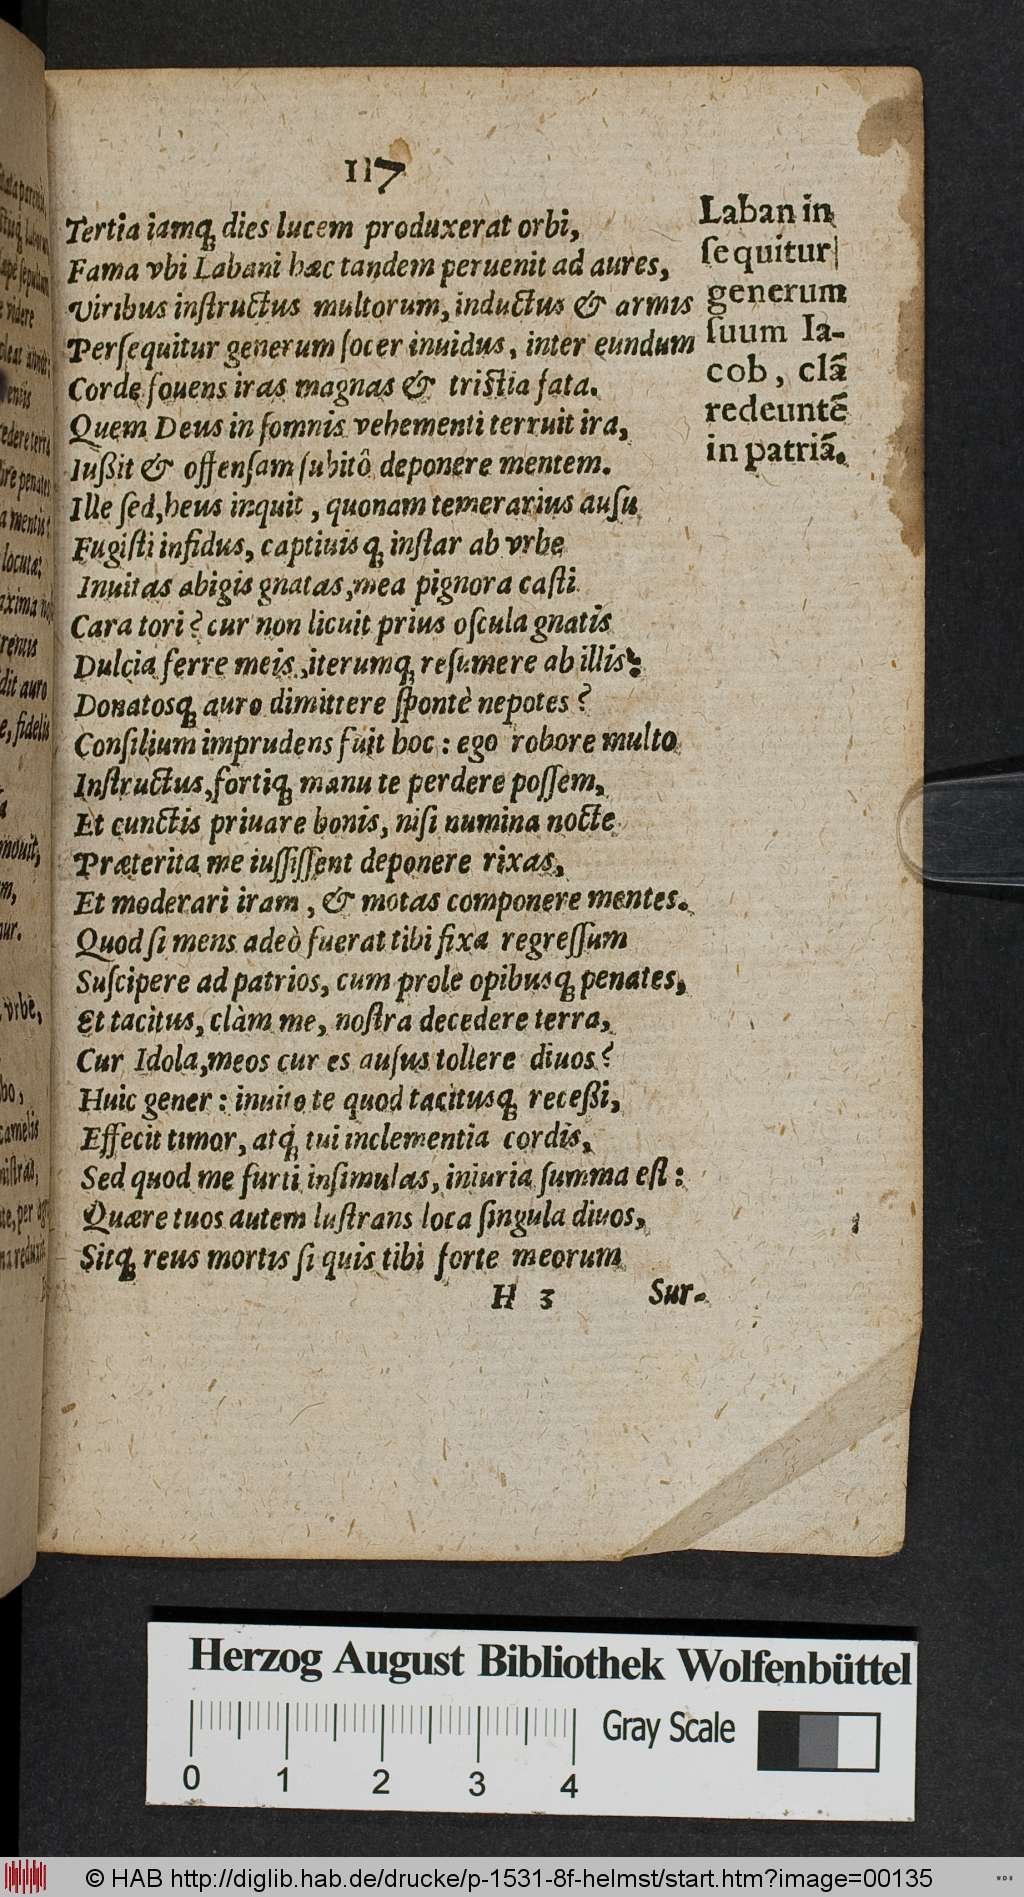 117
Tertia iamq́; dies lucem produxerat orbi,
Fama vbi Labani hæc tandem peruenit ad aures,
Viribus inſtructus multorum, inductus & armis
Perſequitur generum ſocer inuidus, inter eundum
Corde fouens iras magnas & triſtia fata.
Quem Deus in ſomnis vehementi terruit ira,
Iußit & offenſam ſubitô deponere mentem.
Ille ſed, heus inquit, quonam temerarius auſu
Fugiſti infidus, captiuisq; inſtar ab vrbe
Inuitas abigis gnatas, mea pignora caſti
Cara tori? cur non licuit prius oſcula gnatis
Dulcia ferre meis, iterumq; reſumere ab illis?
Donatosq; auro dimittere ſpontè nepotes?
Conſilium imprudens fuit hoc: ego robore multo
Inſtructus, fortiq; manu te perdere poſſem,
Et cunctis priuare bonis, niſi numina nocte
Præterita me iuſſiſſent deponere rixas,
Et moderari iram, & motas componere mentes.
Quod ſi mens adeò fuerat tibi fixa regreſſum
Suſcipere ad patrios, cum prole opibusq; penates,
Et tacitus, clàm me, noſtra decedere terra,
Cur Idola, meos cur es auſus tollere diuos?
Huic gener: inuito te quod tacitusq; receßi,
Effecit timor, atq; tui inclementia cordis,
Sed quod me furti inſimulas, iniuria ſumma eſt:
Quære tuos autem luſtrans loca ſingula diuos,
Sitq; reus mortis ſi quis tibi forte meorum
H 3 Sur-
Laban in
ſequitur
generum
ſuum Ia-
cob, clã
redeuntẽ
in patriã.
Herzog August Bibliothek Wolfenbüttel
0 1 2 3 4
Gray Scale
© HAB http://diglib.hab.de/drucke/p-1531-8f-helmst/start.htm?image=00135